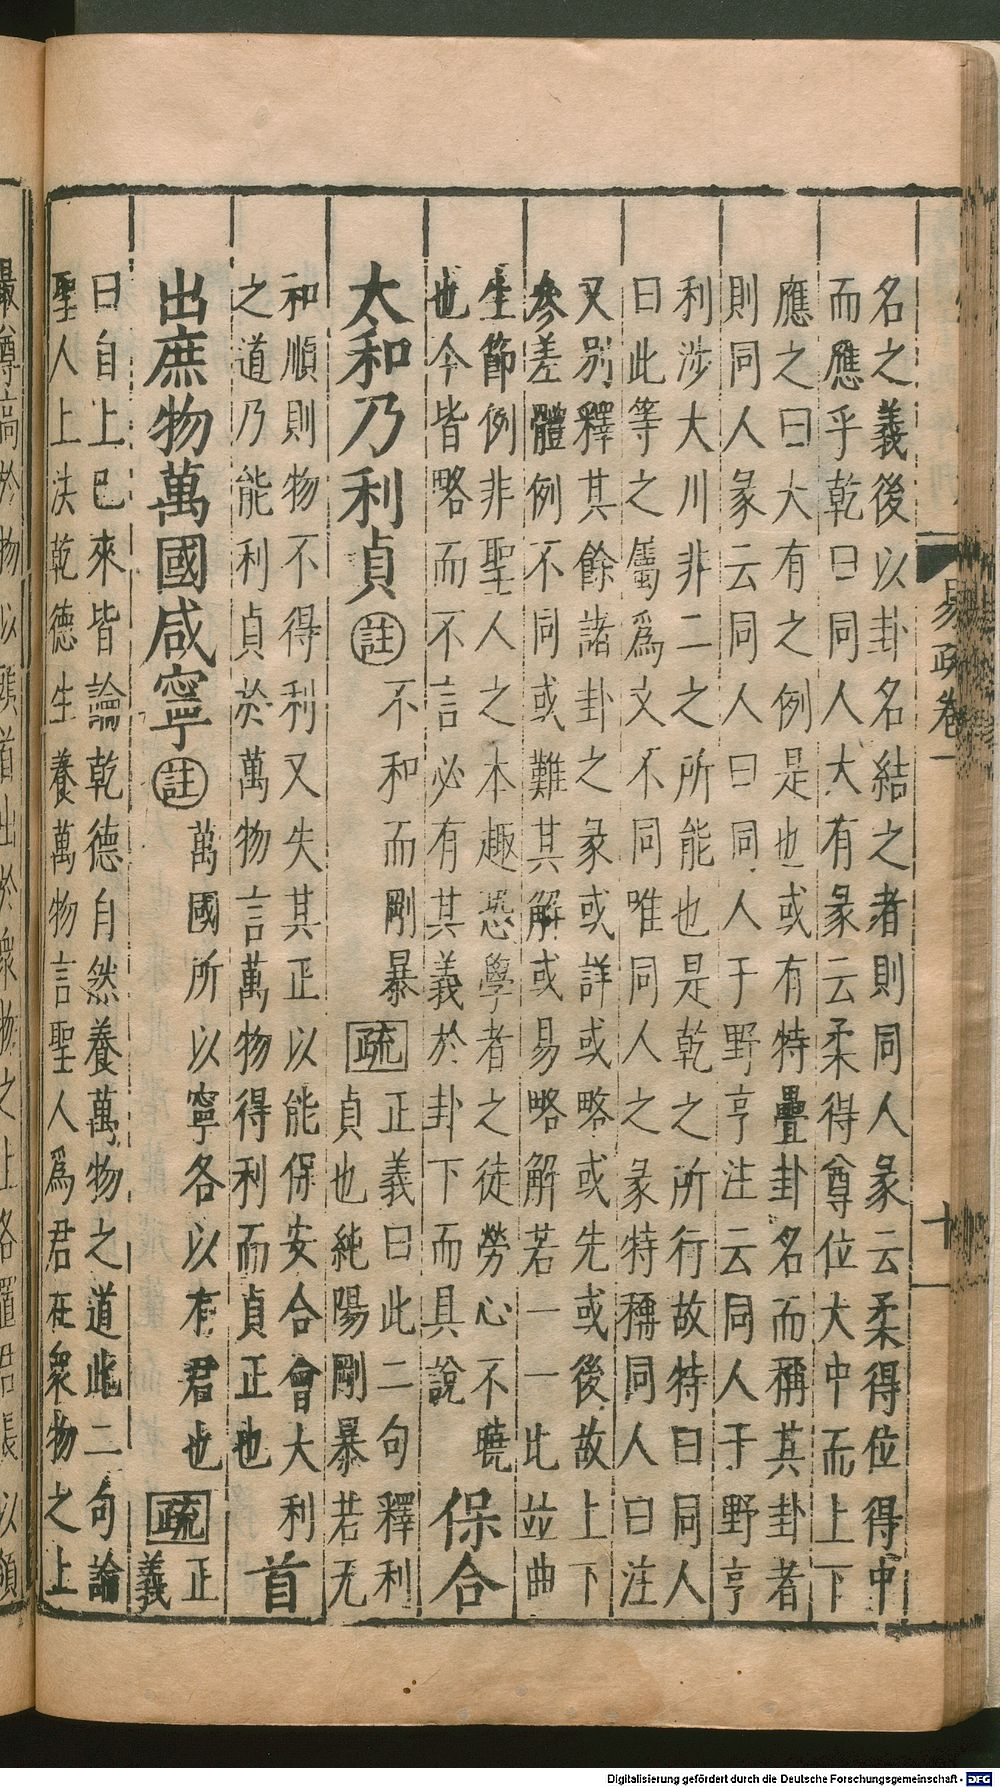 易疏卷一
十
名之義後以卦名結之者則同人彖云柔得位得中
而應乎乾曰同人大有彖云柔得尊位大中而上下
應之曰大有之例是也或有特疊卦名而稱其卦者
則同人彖云同人曰同人于野亨注云同人于野亨
利涉大川非二之所能也是乾之所行故特曰同人
曰此等之屬爲文不同唯同人之彖特稱同人曰注
又別釋其餘諸卦之彖或詳或略或先或後故上下
參差體例不同或難其解或易略解若一一比並曲
生節例非聖人之本趣恐學者之徒勞心不曉
也今皆略而不言必有其義於卦下而具說
保合
太和乃利貞註不和而剛暴疏正義曰此二句釋利
貞也純陽剛暴若无
和順則物不得利又失其正以能保安合會大利
之道乃能利貞於萬物言萬物得利而貞正也
首
出庶物萬國咸寧註萬國所以寧各以有君也疏正
義
曰自上已來皆論乾德自然養萬物之道此二句論
聖人上法乾德生養萬物言聖人爲君在衆物之上
最尊高於物以頭首出於衆物之上各置君長以領
Digitalisierung gefördert durch die Deutsche Forschungsgemeinschaft - DFG